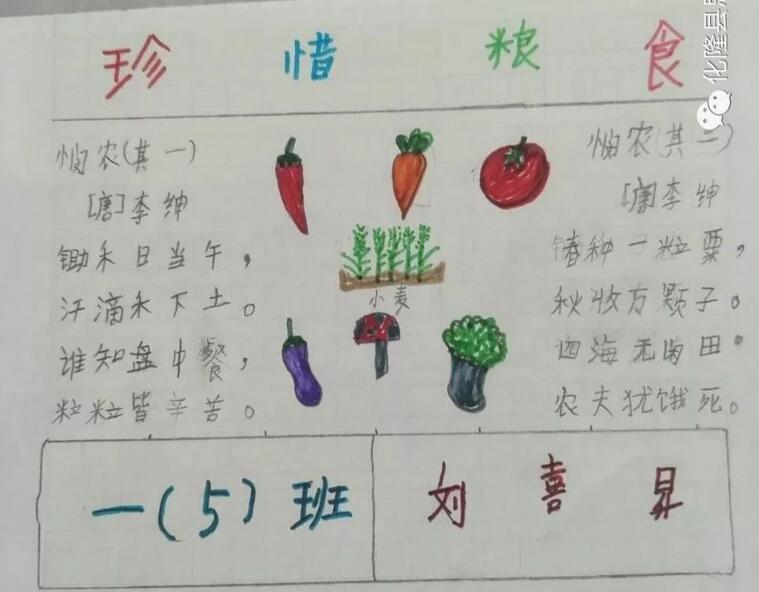 珍惜粮食
悯农(其一)
[唐]李绅
锄禾日当午，
汗滴禾下土。
谁知盘中餐，
粒粒皆辛苦。
小麦
悯农(其二)
[唐]李绅
春种一粒粟，
秋收万颗子。
四海无闲田，
农夫犹饿死。
一(5)班
刘喜昇
化隆县